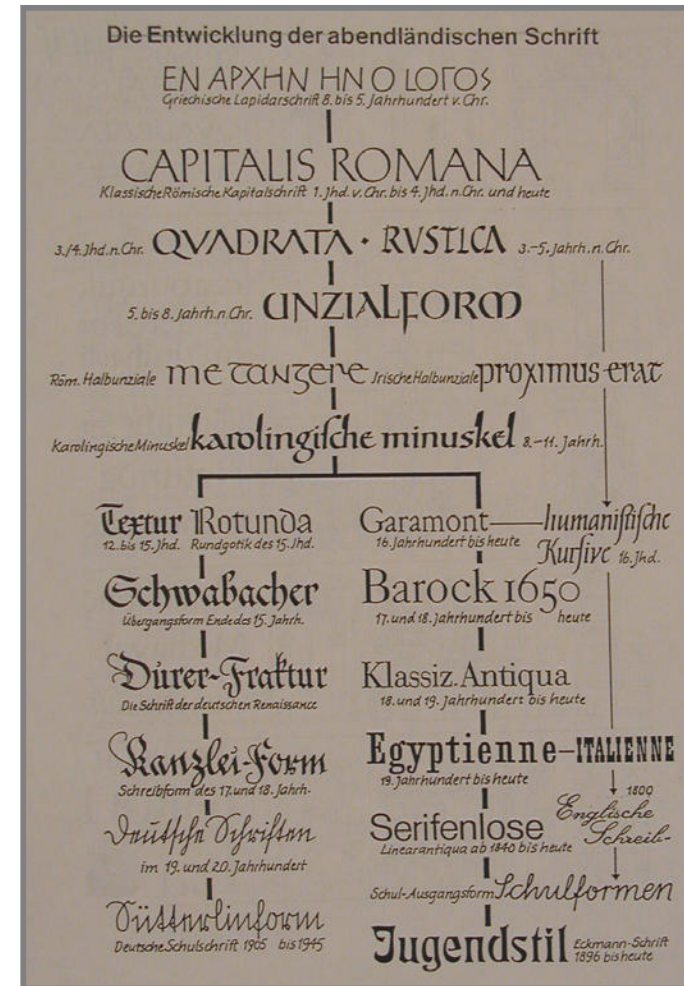 Die Entwicklung der abendländischen Schrift
EN APXHN HN O LOΓOS
Griechische Lapidarschrift 8. bis 5. Jahrhundert v. Chr.
CAPITALIS ROMANA
Klassische Römische Kapitalschrift 1. Jhd. v. Chr. bis 4. Jhd. n. Chr. und heute
3./4. Jhd. n. Chr. QVADRATA · RVSTICA 3.–5. Jahrh. n. Chr.
5. bis 8. Jahrh. n. Chr. UNZIALFORM
Röm. Halbunziale me tangere Irische Halbunziale proximus erat
Karolingische Minuskel karolingiſche minuskel 8.–11. Jahrh.
Textur Rotunda
12. bis 15. Jhd. Rundgotik des 15. Jhd.
Schwabacher
Übergangsform Ende des 15. Jahrh.
Dürer-Fraktur
Die Schrift der deutschen Renaissance
Kanzlei-Form
Schreibform des 17. und 18. Jahrh.
Deutſche Schriften
im 19. und 20. Jahrhundert
Sütterlinform
Deutsche Schulschrift 1905 bis 1945
Garamont — humaniſtiſche
16. Jahrhundert bis heute
Kurſive 16. Jhd.
Barock 1650
17. und 18. Jahrhundert bis heute
Klassiz. Antiqua
18. und 19. Jahrhundert bis heute
Egyptienne – ITALIENNE
19. Jahrhundert bis heute
1800
Englische
Schreib-
Serifenlose
Linearantiqua ab 1840 bis heute
Schul-Ausgangsform Schulformen
Jugendstil Eckmann-Schrift
1896 bis heute